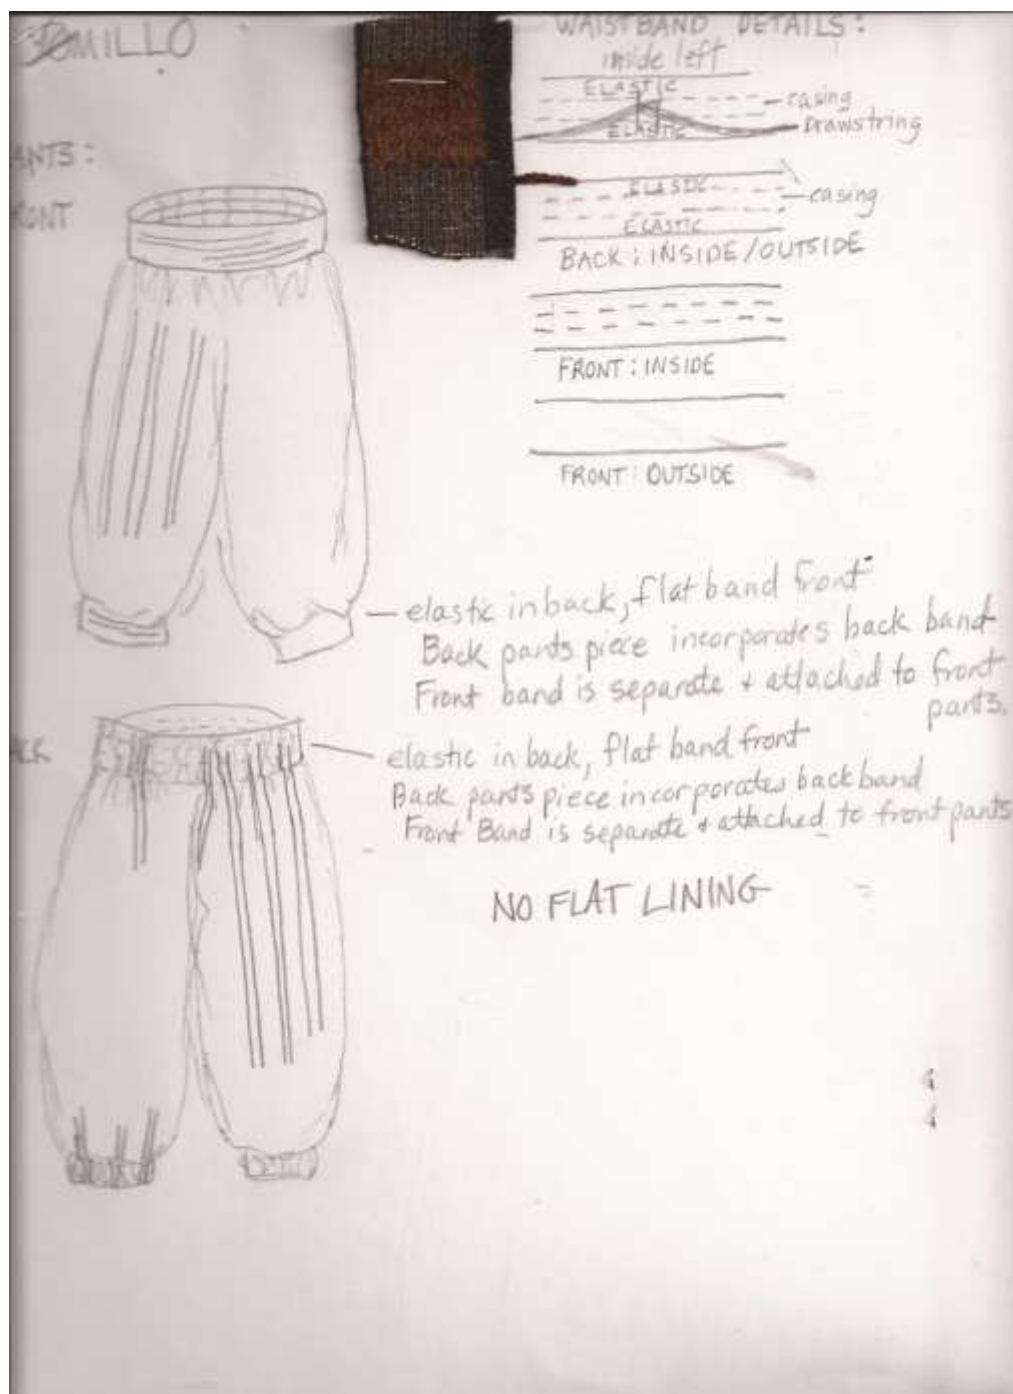 WAISTBAND DETAILS:
inside left
ELASTIC
casing
Drawstring
ELASTIC
ELASTIC
casing
ELASTIC
BACK: INSIDE/OUTSIDE
FRONT: INSIDE
FRONT: OUTSIDE
ANTS:
RONT
elastic in back, flat band front
Back pants piece incorporates back band
Front band is separate + attached to front
pants.
ACK
elastic in back, flat band front
Back pants piece incorporates back band
Front Band is separate + attached to front pants
NO FLAT LINING